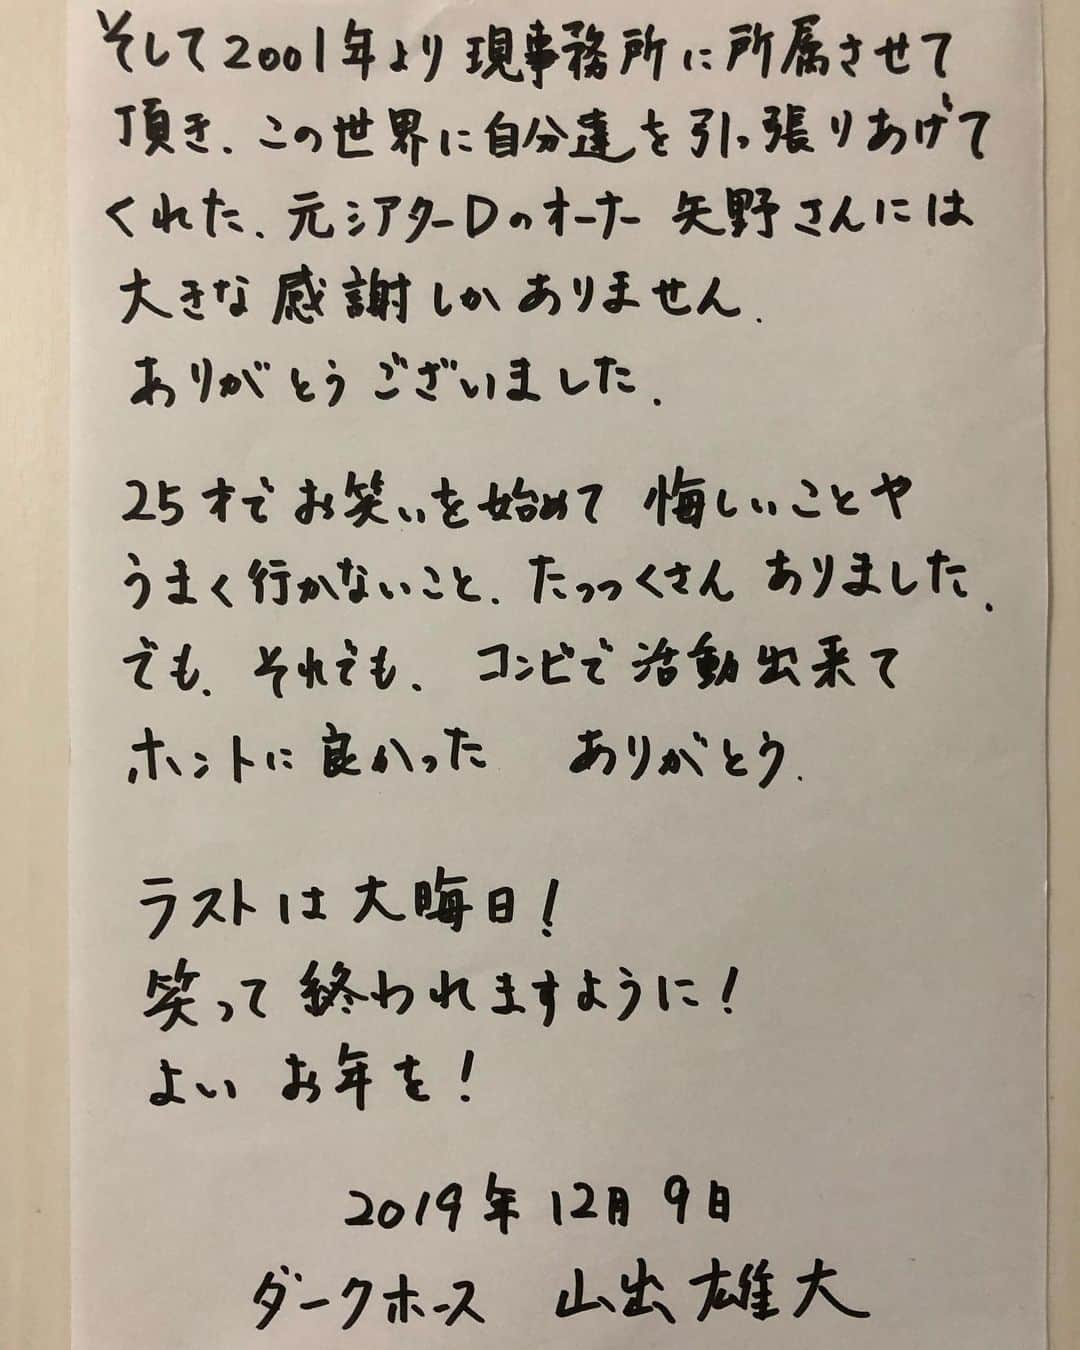 そして2001年より現事務所に所属させて
頂き、この世界に自分達を引っ張りあげて
くれた、元シアターDのオーナー 矢野さんには
大きな感謝しかありません。
ありがとうございました。
25才でお笑いを始めて 悔しいことや
うまく行かないこと、たっっくさん ありました。
でも、それでも、コンビで活動出来て
ホントに良かった ありがとう。
ラストは大晦日！
笑って終われますように！
よいお年を！
2019年12月9日
ダークホース 山出雄大